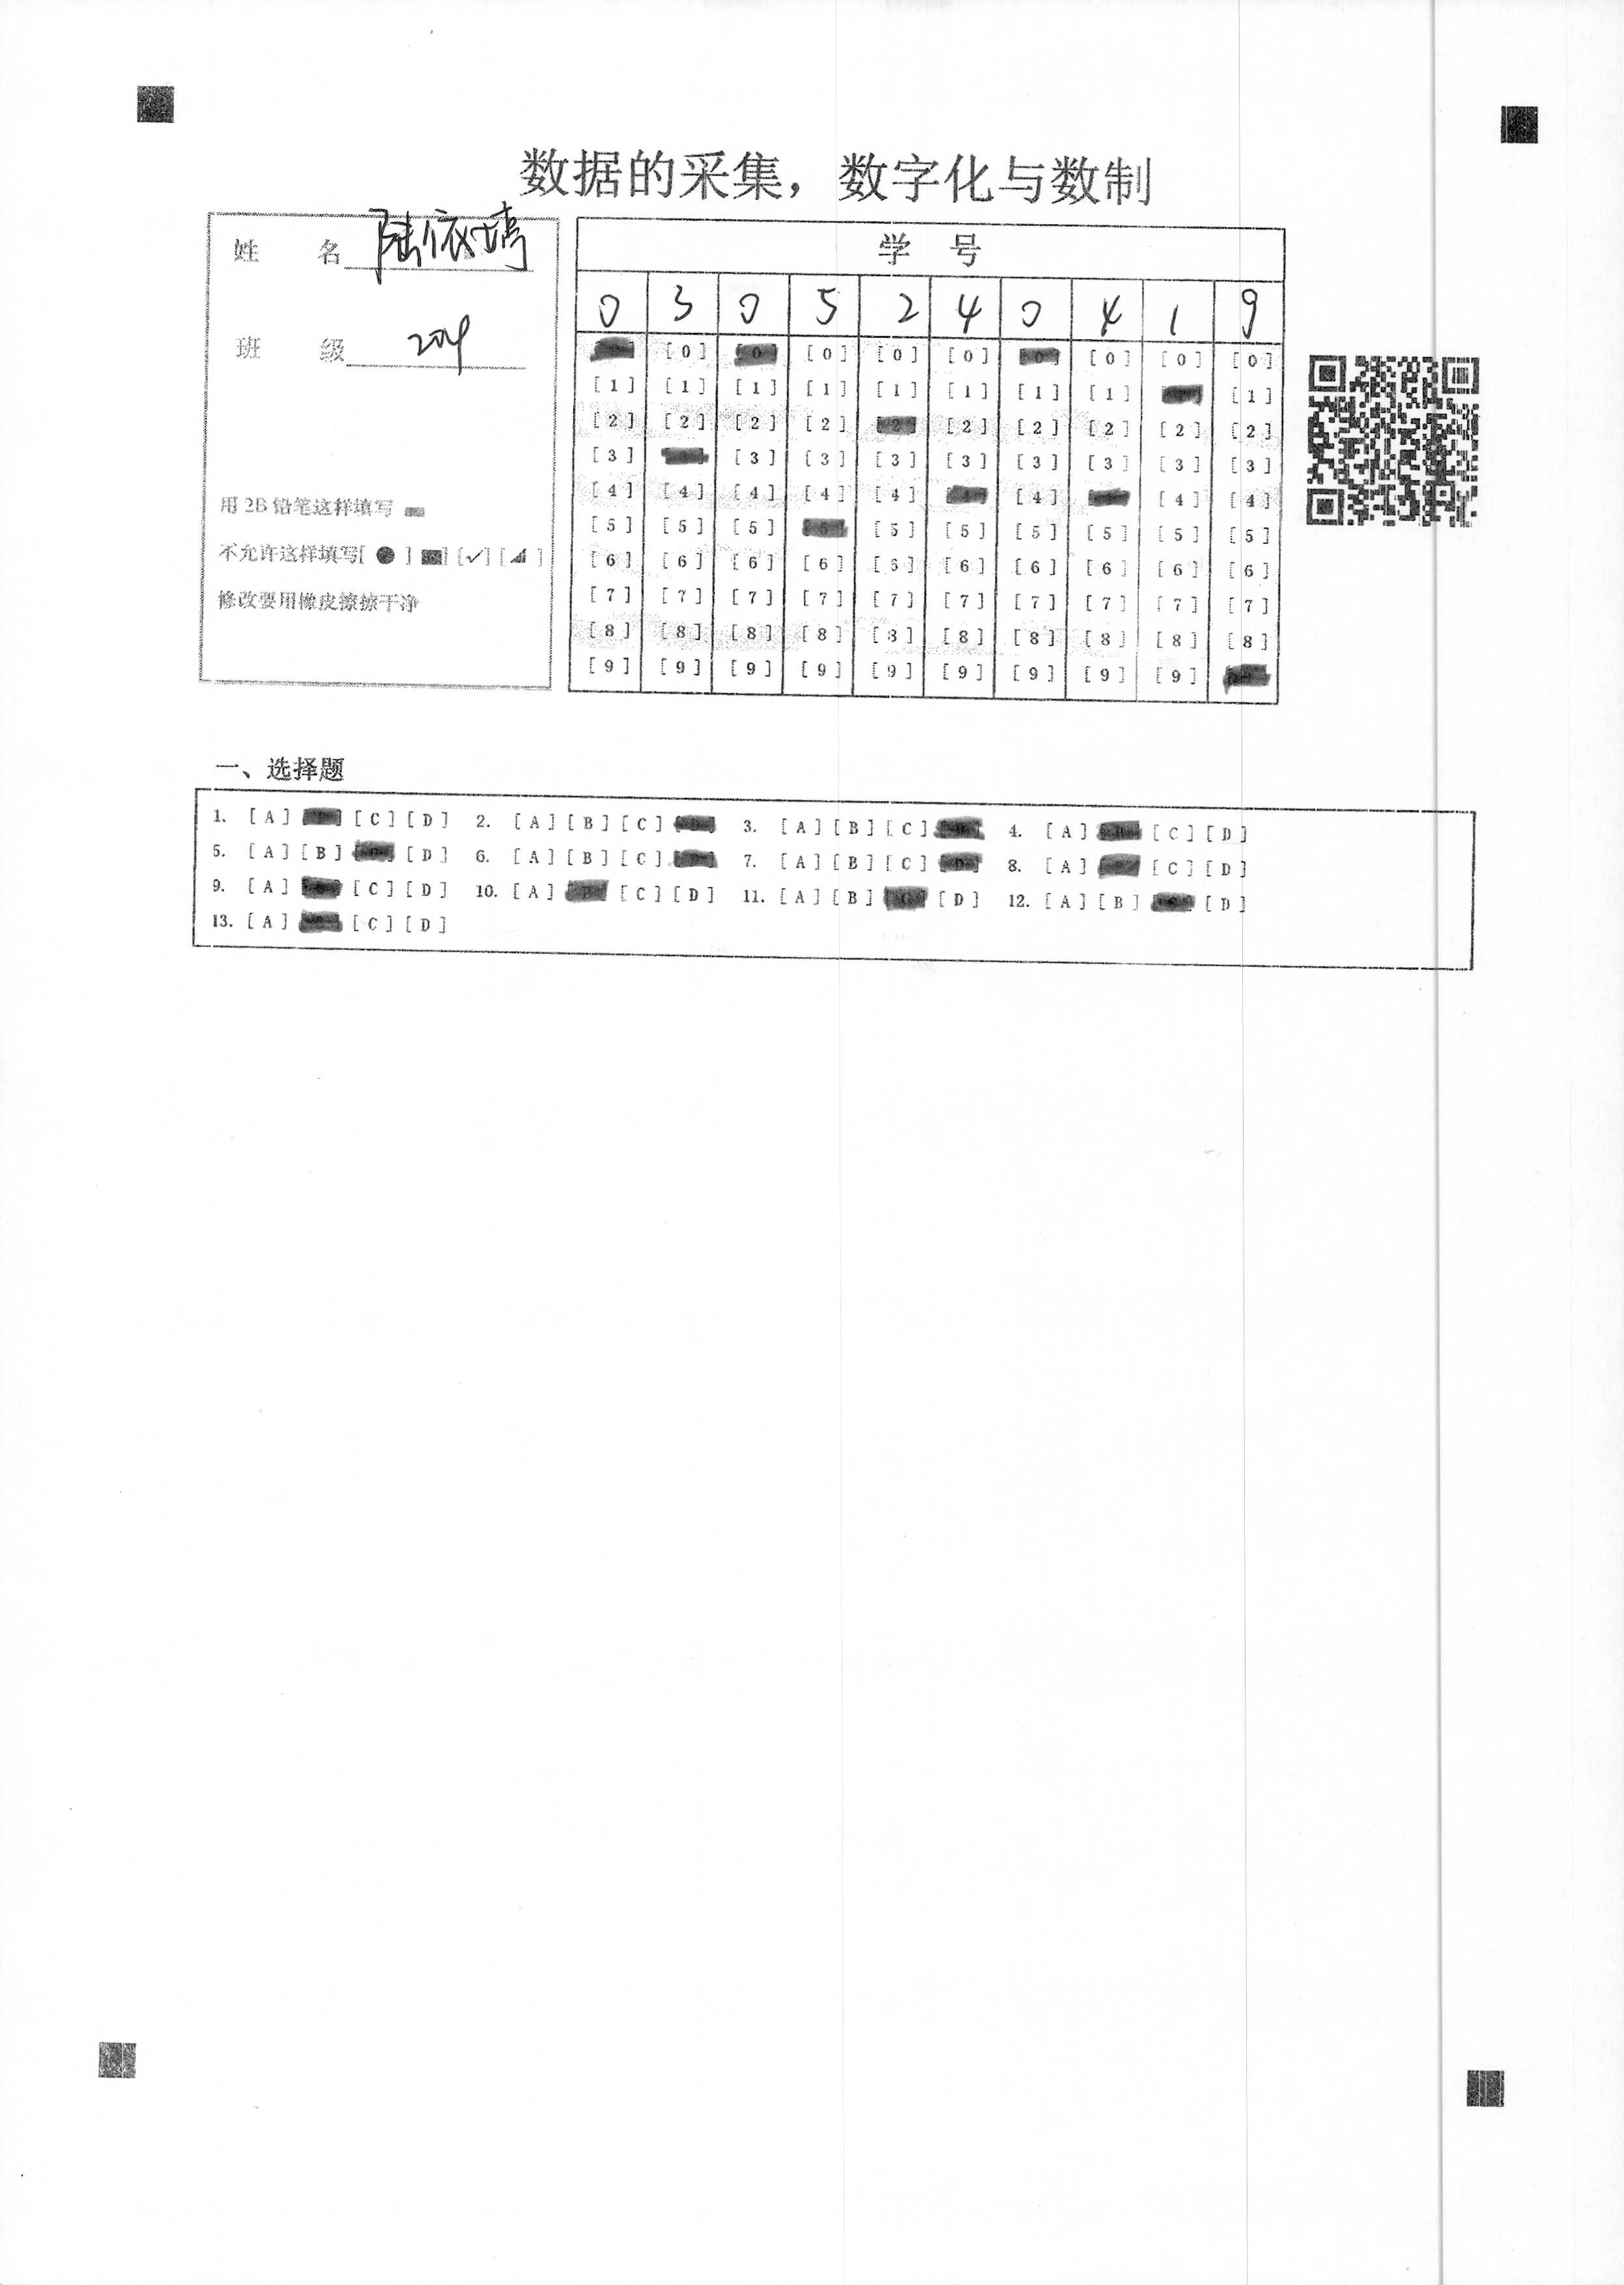 数据的采集，数字化与数制
姓 名 陆依婷
班 级 204
用 2B 铅笔这样填写
不允许这样填写[ ● ] [■] [✓] [◢]
修改要用橡皮擦擦干净
学 号
0 3 0 5 2 4 0 4 1 9
[0] [0] [0] [0] [0] [0] [0] [0]
[1] [1] [1] [1] [1] [1] [1] [1] [1]
[2] [2] [2] [2] [2] [2] [2] [2] [2] [2]
[3] [3] [3] [3] [3] [3] [3] [3] [3]
[4] [4] [4] [4] [4] [4] [4] [4]
[5] [5] [5] [5] [5] [5] [5] [5] [5] [5]
[6] [6] [6] [6] [6] [6] [6] [6] [6] [6]
[7] [7] [7] [7] [7] [7] [7] [7] [7] [7]
[8] [8] [8] [8] [8] [8] [8] [8] [8] [8]
[9] [9] [9] [9] [9] [9] [9] [9] [9]
一、选择题
1. [A] [C] [D] 2. [A] [B] [C] 3. [A] [B] [C] 4. [A] [C] [D]
5. [A] [B] [D] 6. [A] [B] [C] 7. [A] [B] [C] 8. [A] [C] [D]
9. [A] [C] [D] 10. [A] [C] [D] 11. [A] [B] [D] 12. [A] [B] [D]
13. [A] [C] [D]